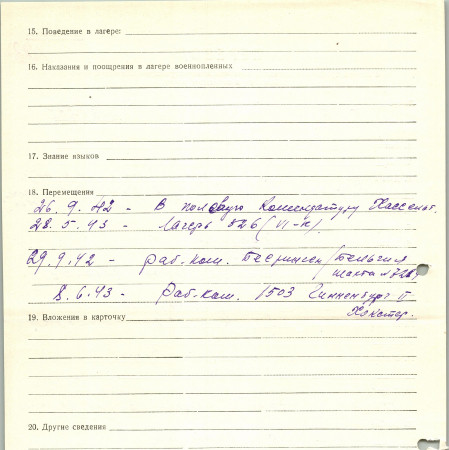 15. Поведение в лагере:
16. Наказания и поощрения в лагере военнопленных
17. Знание языков
18. Перемещения
26. 9. 42 - в полевую комендатуру Хассельт.
28. 5. 43 - Лагерь 326 (VI-к)
29. 9. 42 - раб. ком. Беринген / Бельгия
шахта
8. 6. 43 - Раб-ком. 1503
19. Вложения в карточку
20. Другие сведения